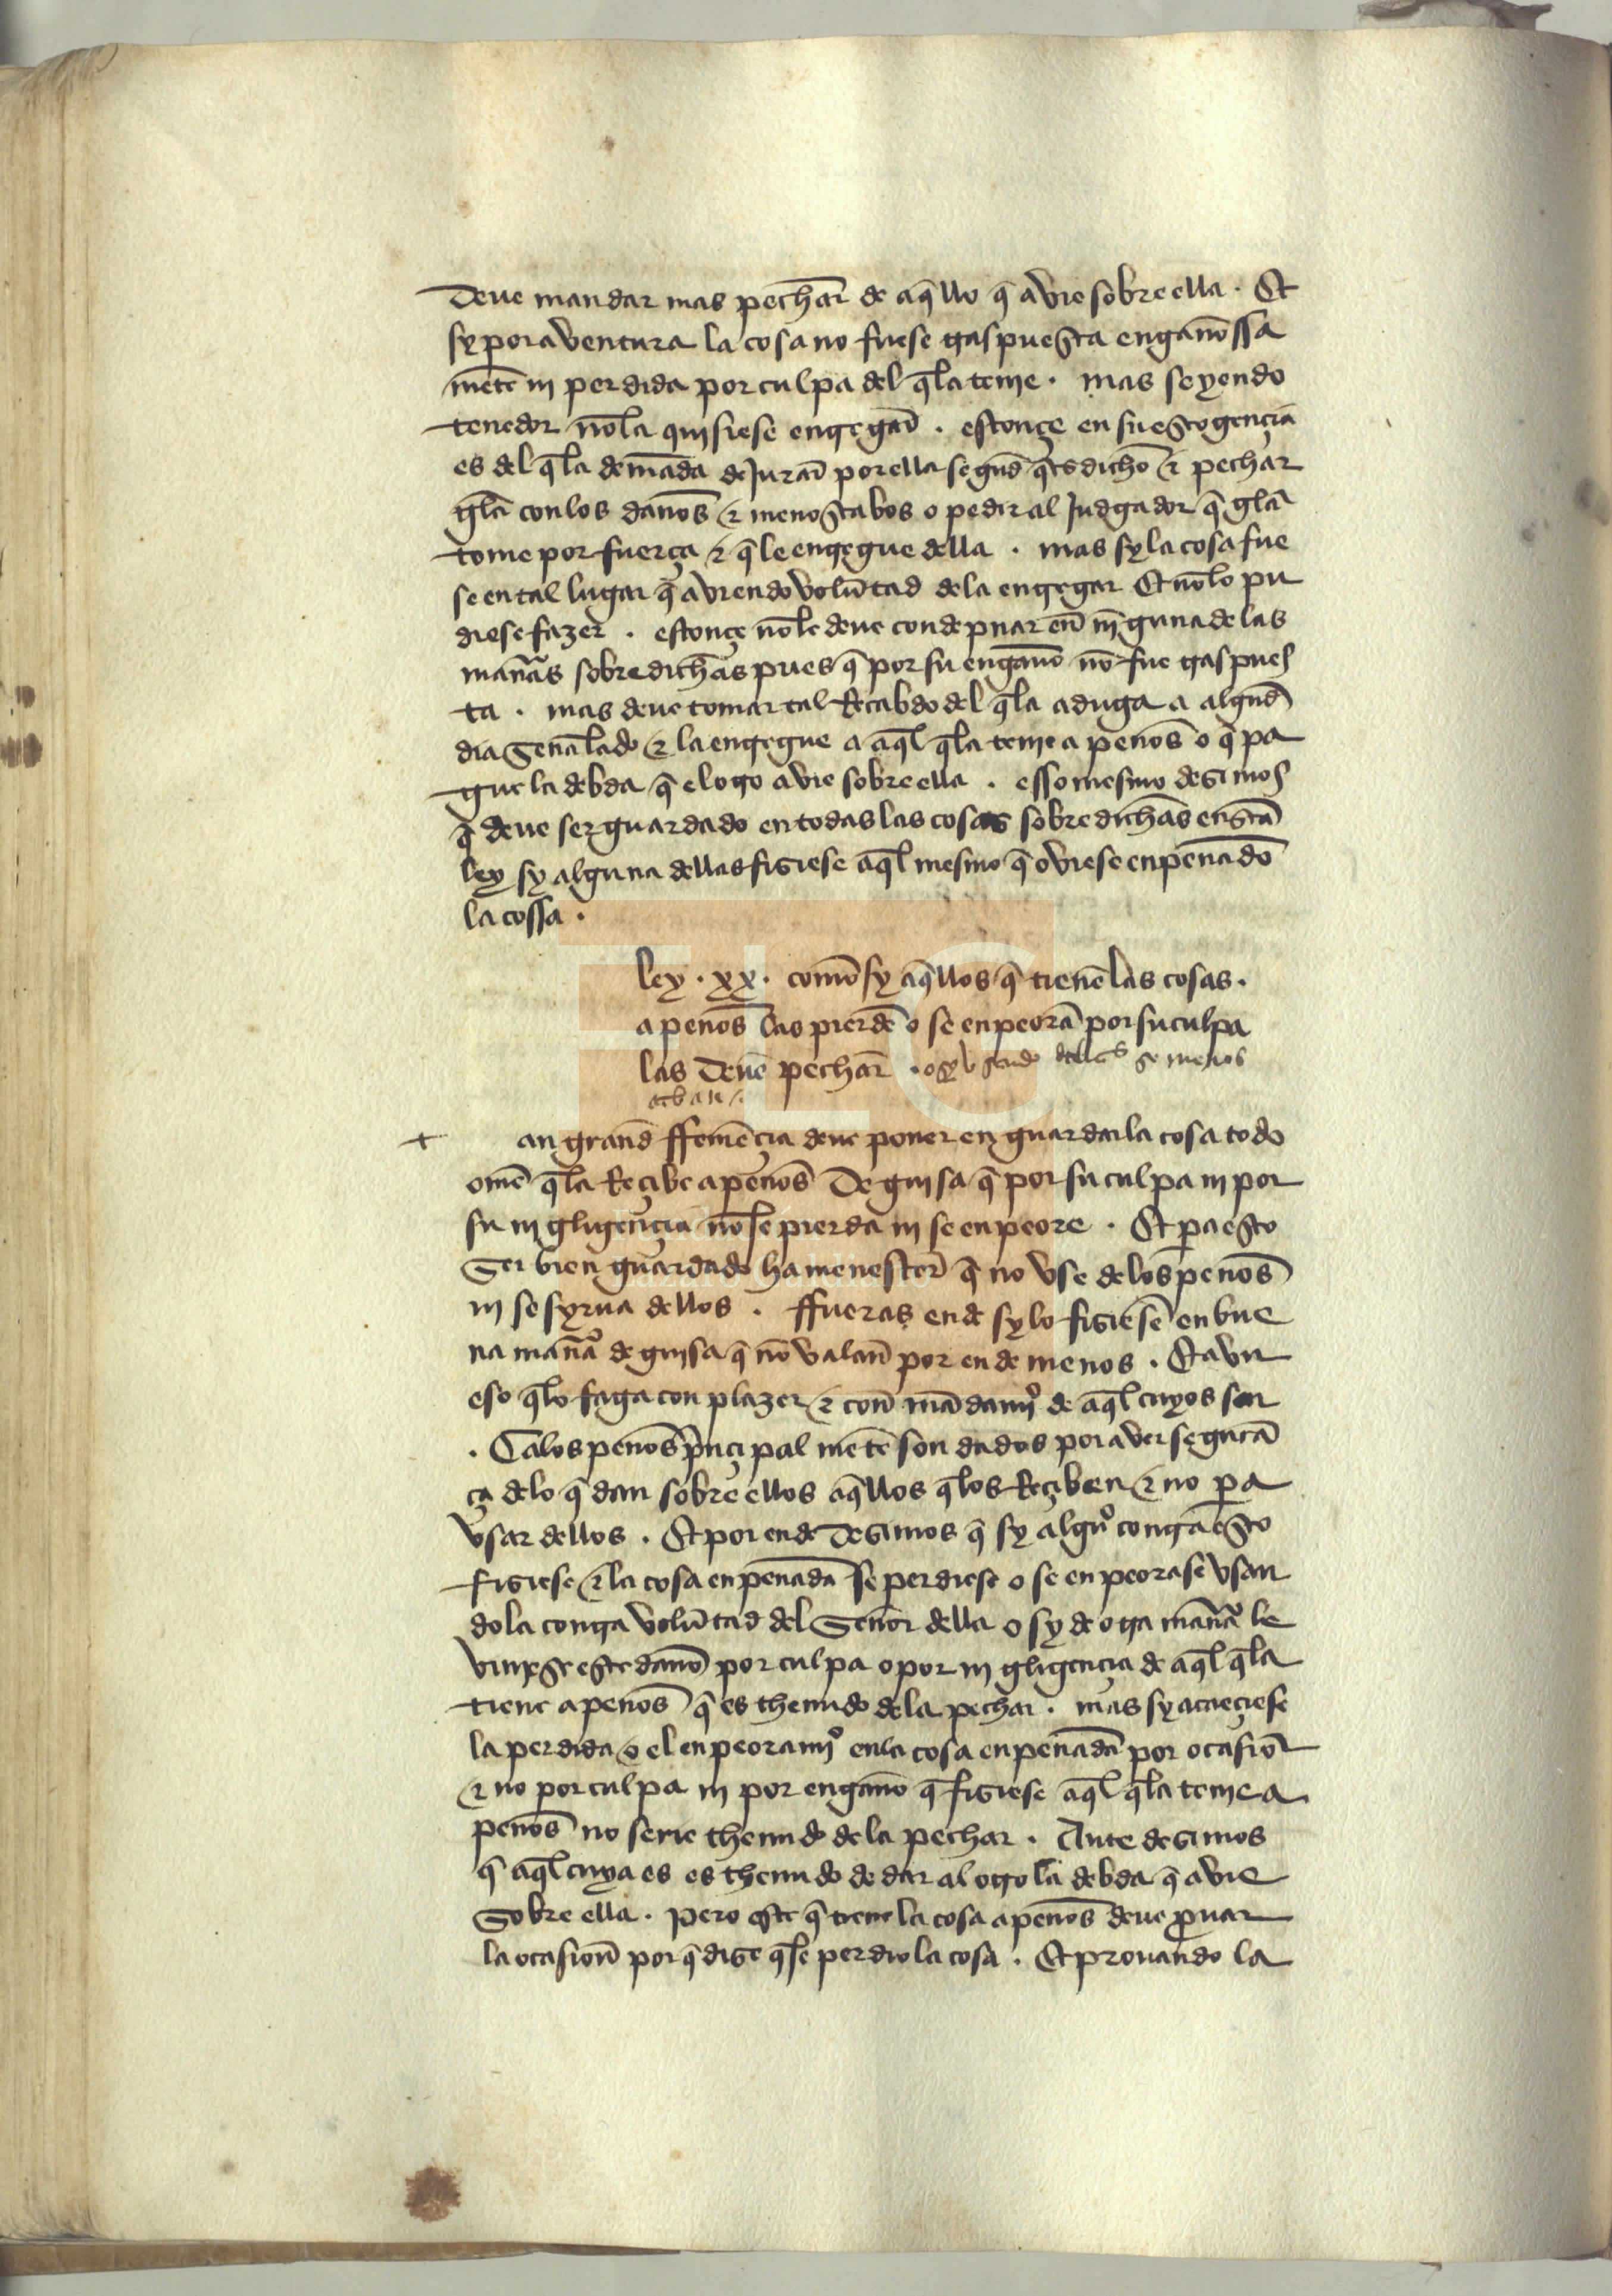 deue mandar mas pechar̄ de aq̄llo q̄ avie sobre ella . Et
sy por aventura la cosa no fuese tᵃspuesta engan̄ossa
mēte nj perdida por culpa del q̄ la tenje . mas seyendo
tenedor nō la quisiese entᵉgar̄ . estonçe en su escogençia
es del q̄ la demāda de Jurar̄ por ella segūd q̄ es dichō & pechar
gela con los dan̄os & menoscabos o pedir al Judgador q̄ gela
tome por fuerça & q̄ le entᵉgue della . mas sy la cosa fue
se en tal lugar q̄ aviendo volūtad de la entᵉgar Et nō lo pu
diese fazer . estonçe nō le deue condepnar en̄ nj̄guna de las
man̄as sobre dichas pues q̄ por su engan̄o nō fue tᵃspues
ta . mas deue tomar tal Recabdo del q̄ la aduga a algūd
dia sen̄alado & la entᵉgue a aq̄l q̄ la tenje a pen̄os o q̄ pa
gue la debda q̄ el otᵒ avie sobre ella . esso mesmo desimos
q̄ deue ser guardado en todas las cosas sobre dichas en esta
ley sy alguna dellas fisiese aq̄l mesmo q̄ oviese enpen̄ado
la cossa .
ley . xx . comō sy aq̄llos q̄ tienē las cosas .
a pen̄os las pierdē o se enpeorā por su culpa
las deuē pechar̄ . o sy vsando dellas se menos
caban /.
t an grand̄ ffemēçia deue poner en guardar la cosa todo
omē q̄ la Reçibe a pen̄os de guisa q̄ por su culpa nj por
su njgligençia nō se pierda nj se enpeore . Et pa esto
ser bien guardado ha menester̄ q̄ no vse de los pen̄os
nj se syrua dellos . ffueras ende sy lo fisiesē en bue
na man̄a de guisa q̄ nō valan̄ por ende menos . Et avn
eso q̄ lo faga con plazer & con̄ mādamjº de aq̄l cuyos son
. Ca los pen̄os pⁱnçipal mēte son dados por aver segurā
ça de lo q̄ dan sobre ellos aq̄llos q̄ los Reçiben & no pa
vsar dellos . Et por ende desimos q̄ sy algūº contᵃ esto
fisiese & la cosa enpen̄ada se perdiese o se enpeorase vsan
dola contᵃ volūtad del sen̄or della o sy de otᵃ man̄a le
vinjese este dan̄o por culpa o por njgligençia de aq̄l q̄ la
tiene a pen̄os q̄ es thenudo de la pechar . mas sy acaeçiese
la perdida o el enpeoramjº en la cosa enpen̄ada por ocasiō
& no por culpa nj por engan̄o q̄ fisiese aq̄l q̄ la tenje a
pen̄os no serie thenudo de la pechar . Ante desimos
q̄ aq̄l cuya es es thenudo de dar al otᵒ la debda q̄ avie
sobre ella . pero este q̄ tiene la cosa a pen̄os deue ꝓuar
la ocasion̄ por q̄ dise q̄ se perdio la cosa . Et prouando la